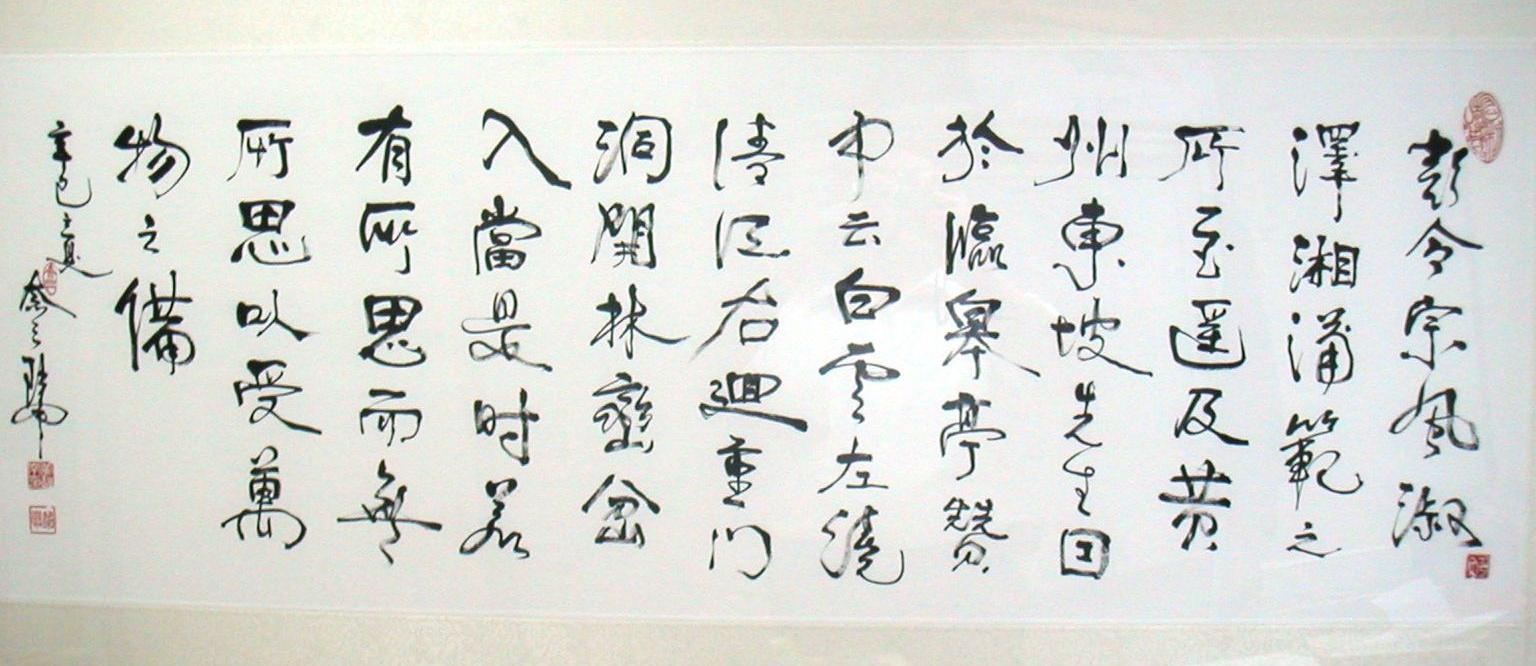 彭令宗風淑
澤湘蒲範之
所至遥及黄
州東坡先生因
於臨皋亭贊
中云白雲左繞
清江右迴重門
洞開林巒岔
入當是时若
有所思而無
所思以受萬
物之備
辛巳之夏